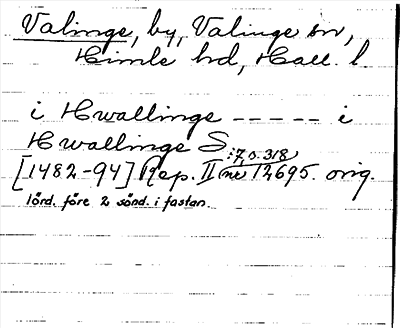 Valinge, by, Valinge sn,
Himle hd, Hall. l
i Hwallinge ----- i
Hwallinge S
:7, s. 318
[1482-94] Rep. II nr 12695. orig.
lörd. före 2 sönd. i fastan